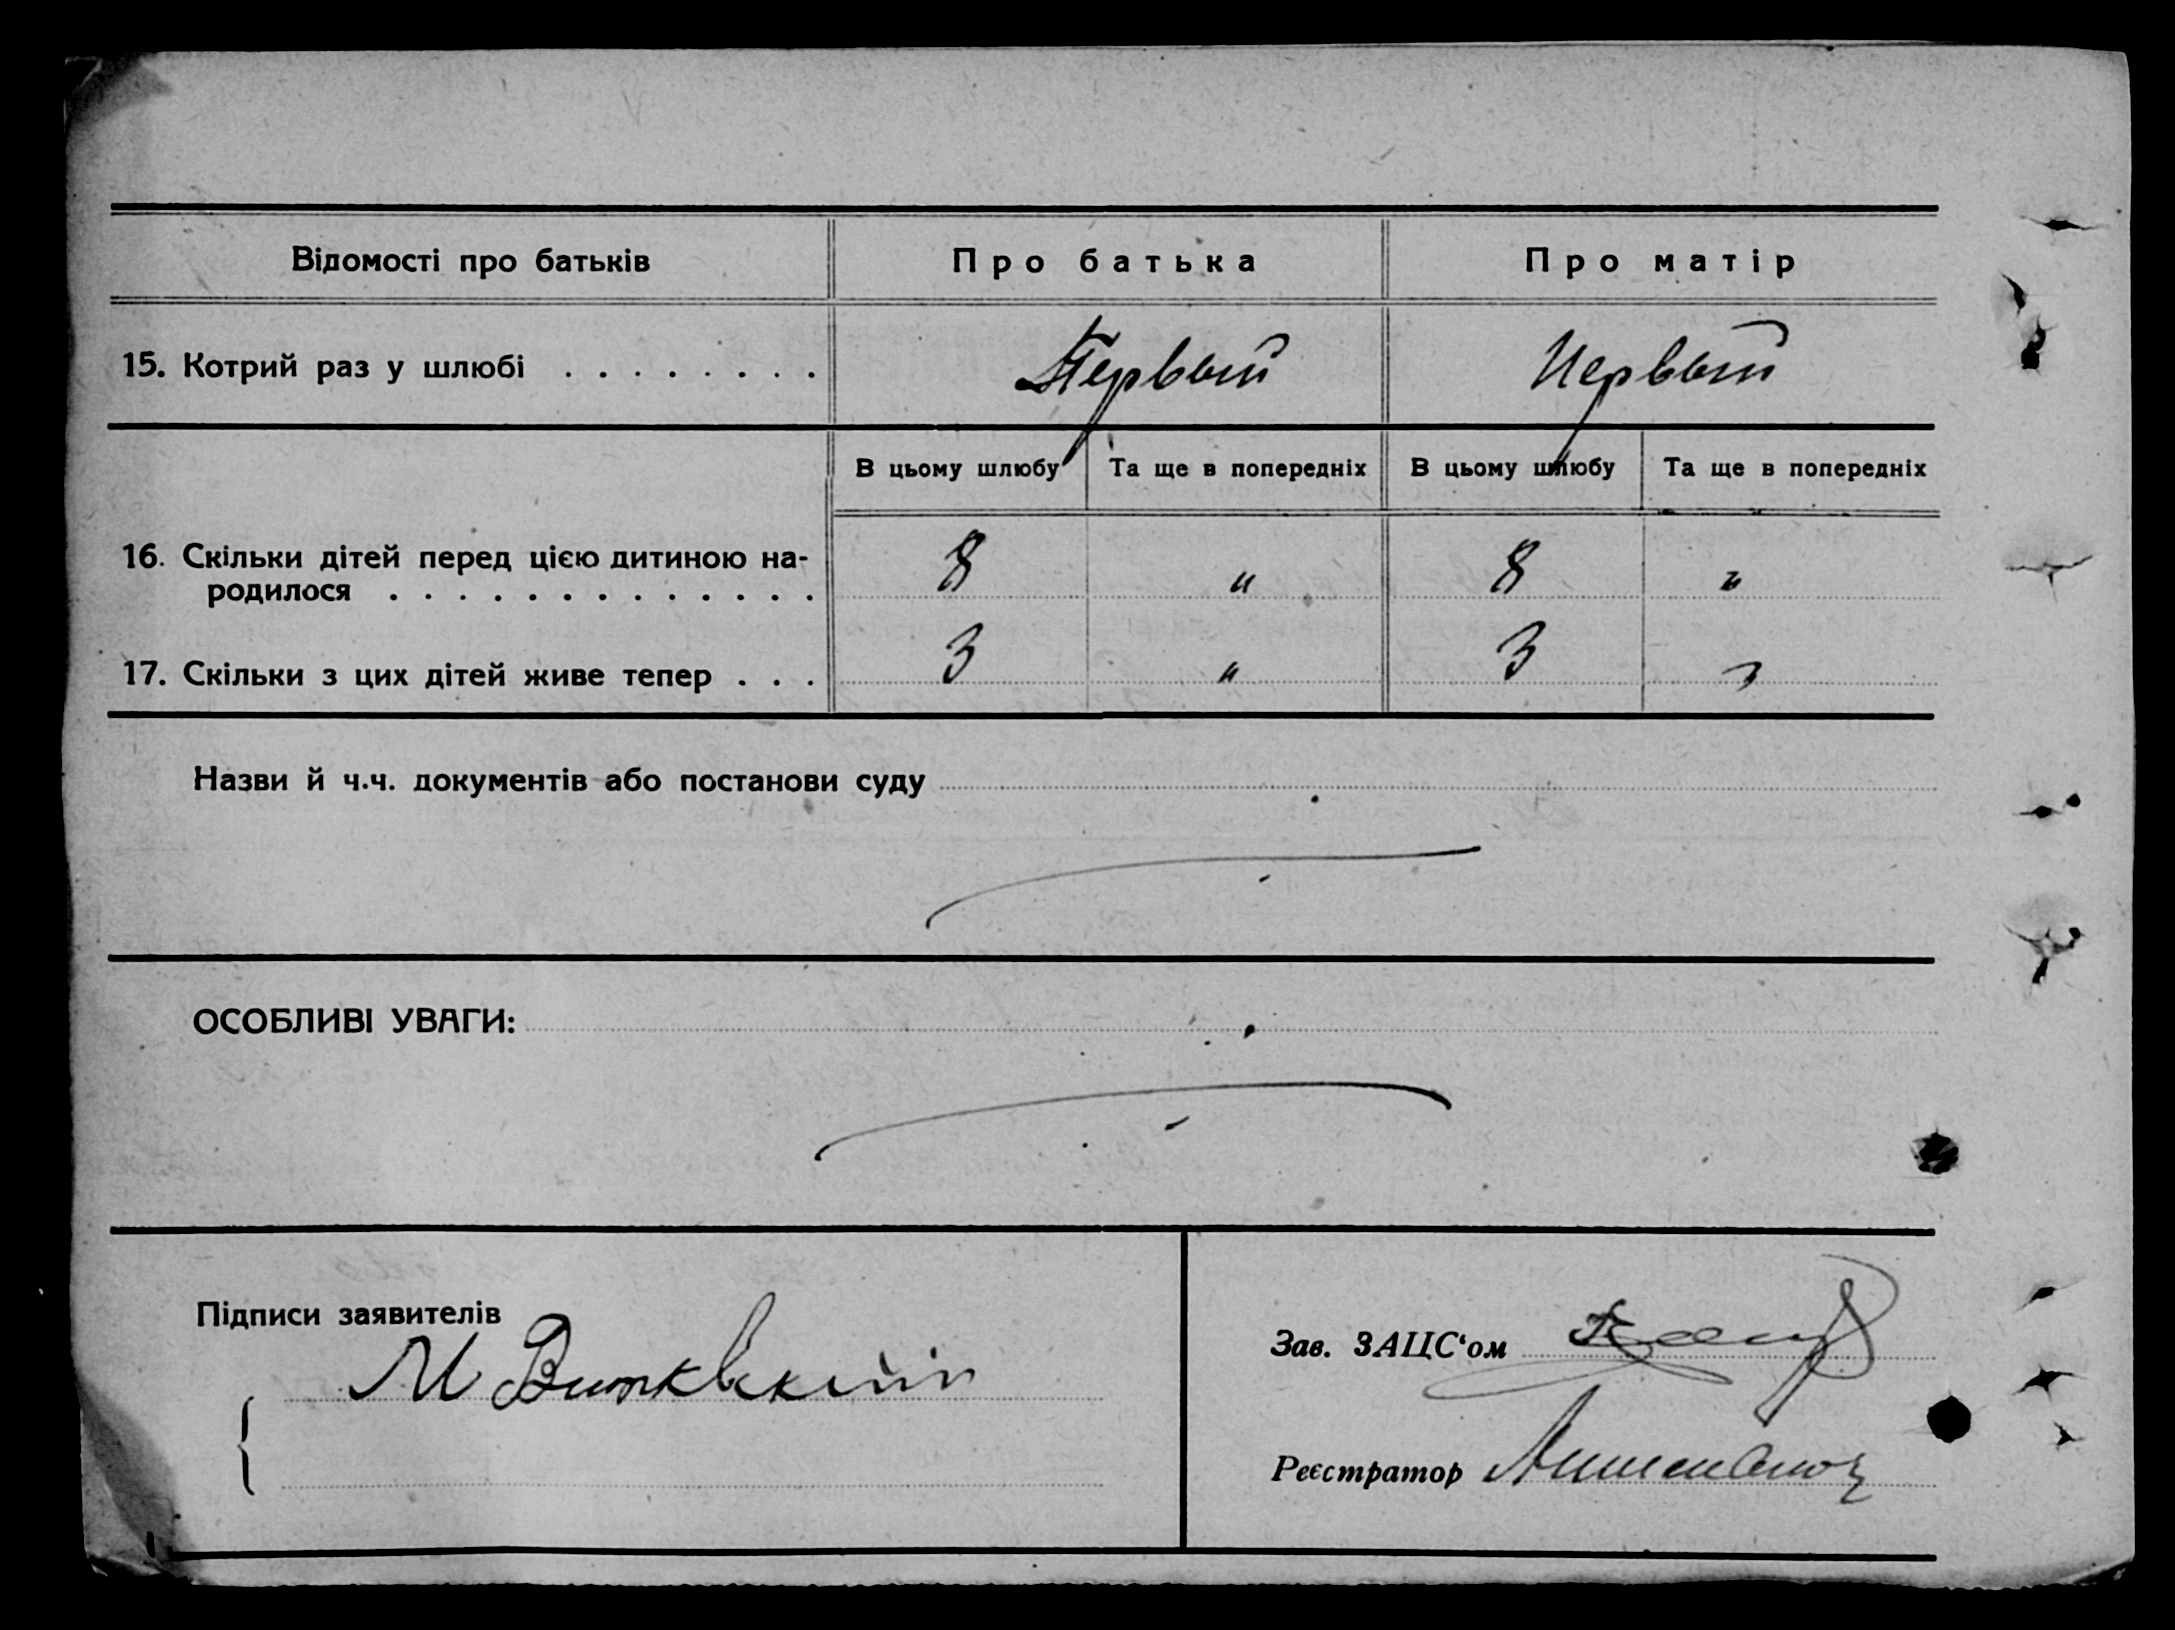 Відомості про батьків Про батька Про матір
15. Котрий раз у шлюбі . . . . . . . . Первый Первый
В цьому шлюбу Та ще в попередніх В цьому шлюбу Та ще в попередніх
16. Скільки дітей перед цією дитиною на-
родилося . . . . . . . . . . . . . 8 " 8 "
17. Скільки з цих дітей живе тепер . . . 3 " 3 "
Назви й ч.ч. документів або постанови суду
ОСОБЛИВІ УВАГИ:
Підписи заявителів
М
Зав. ЗАЦС‘ом
Реєстратор